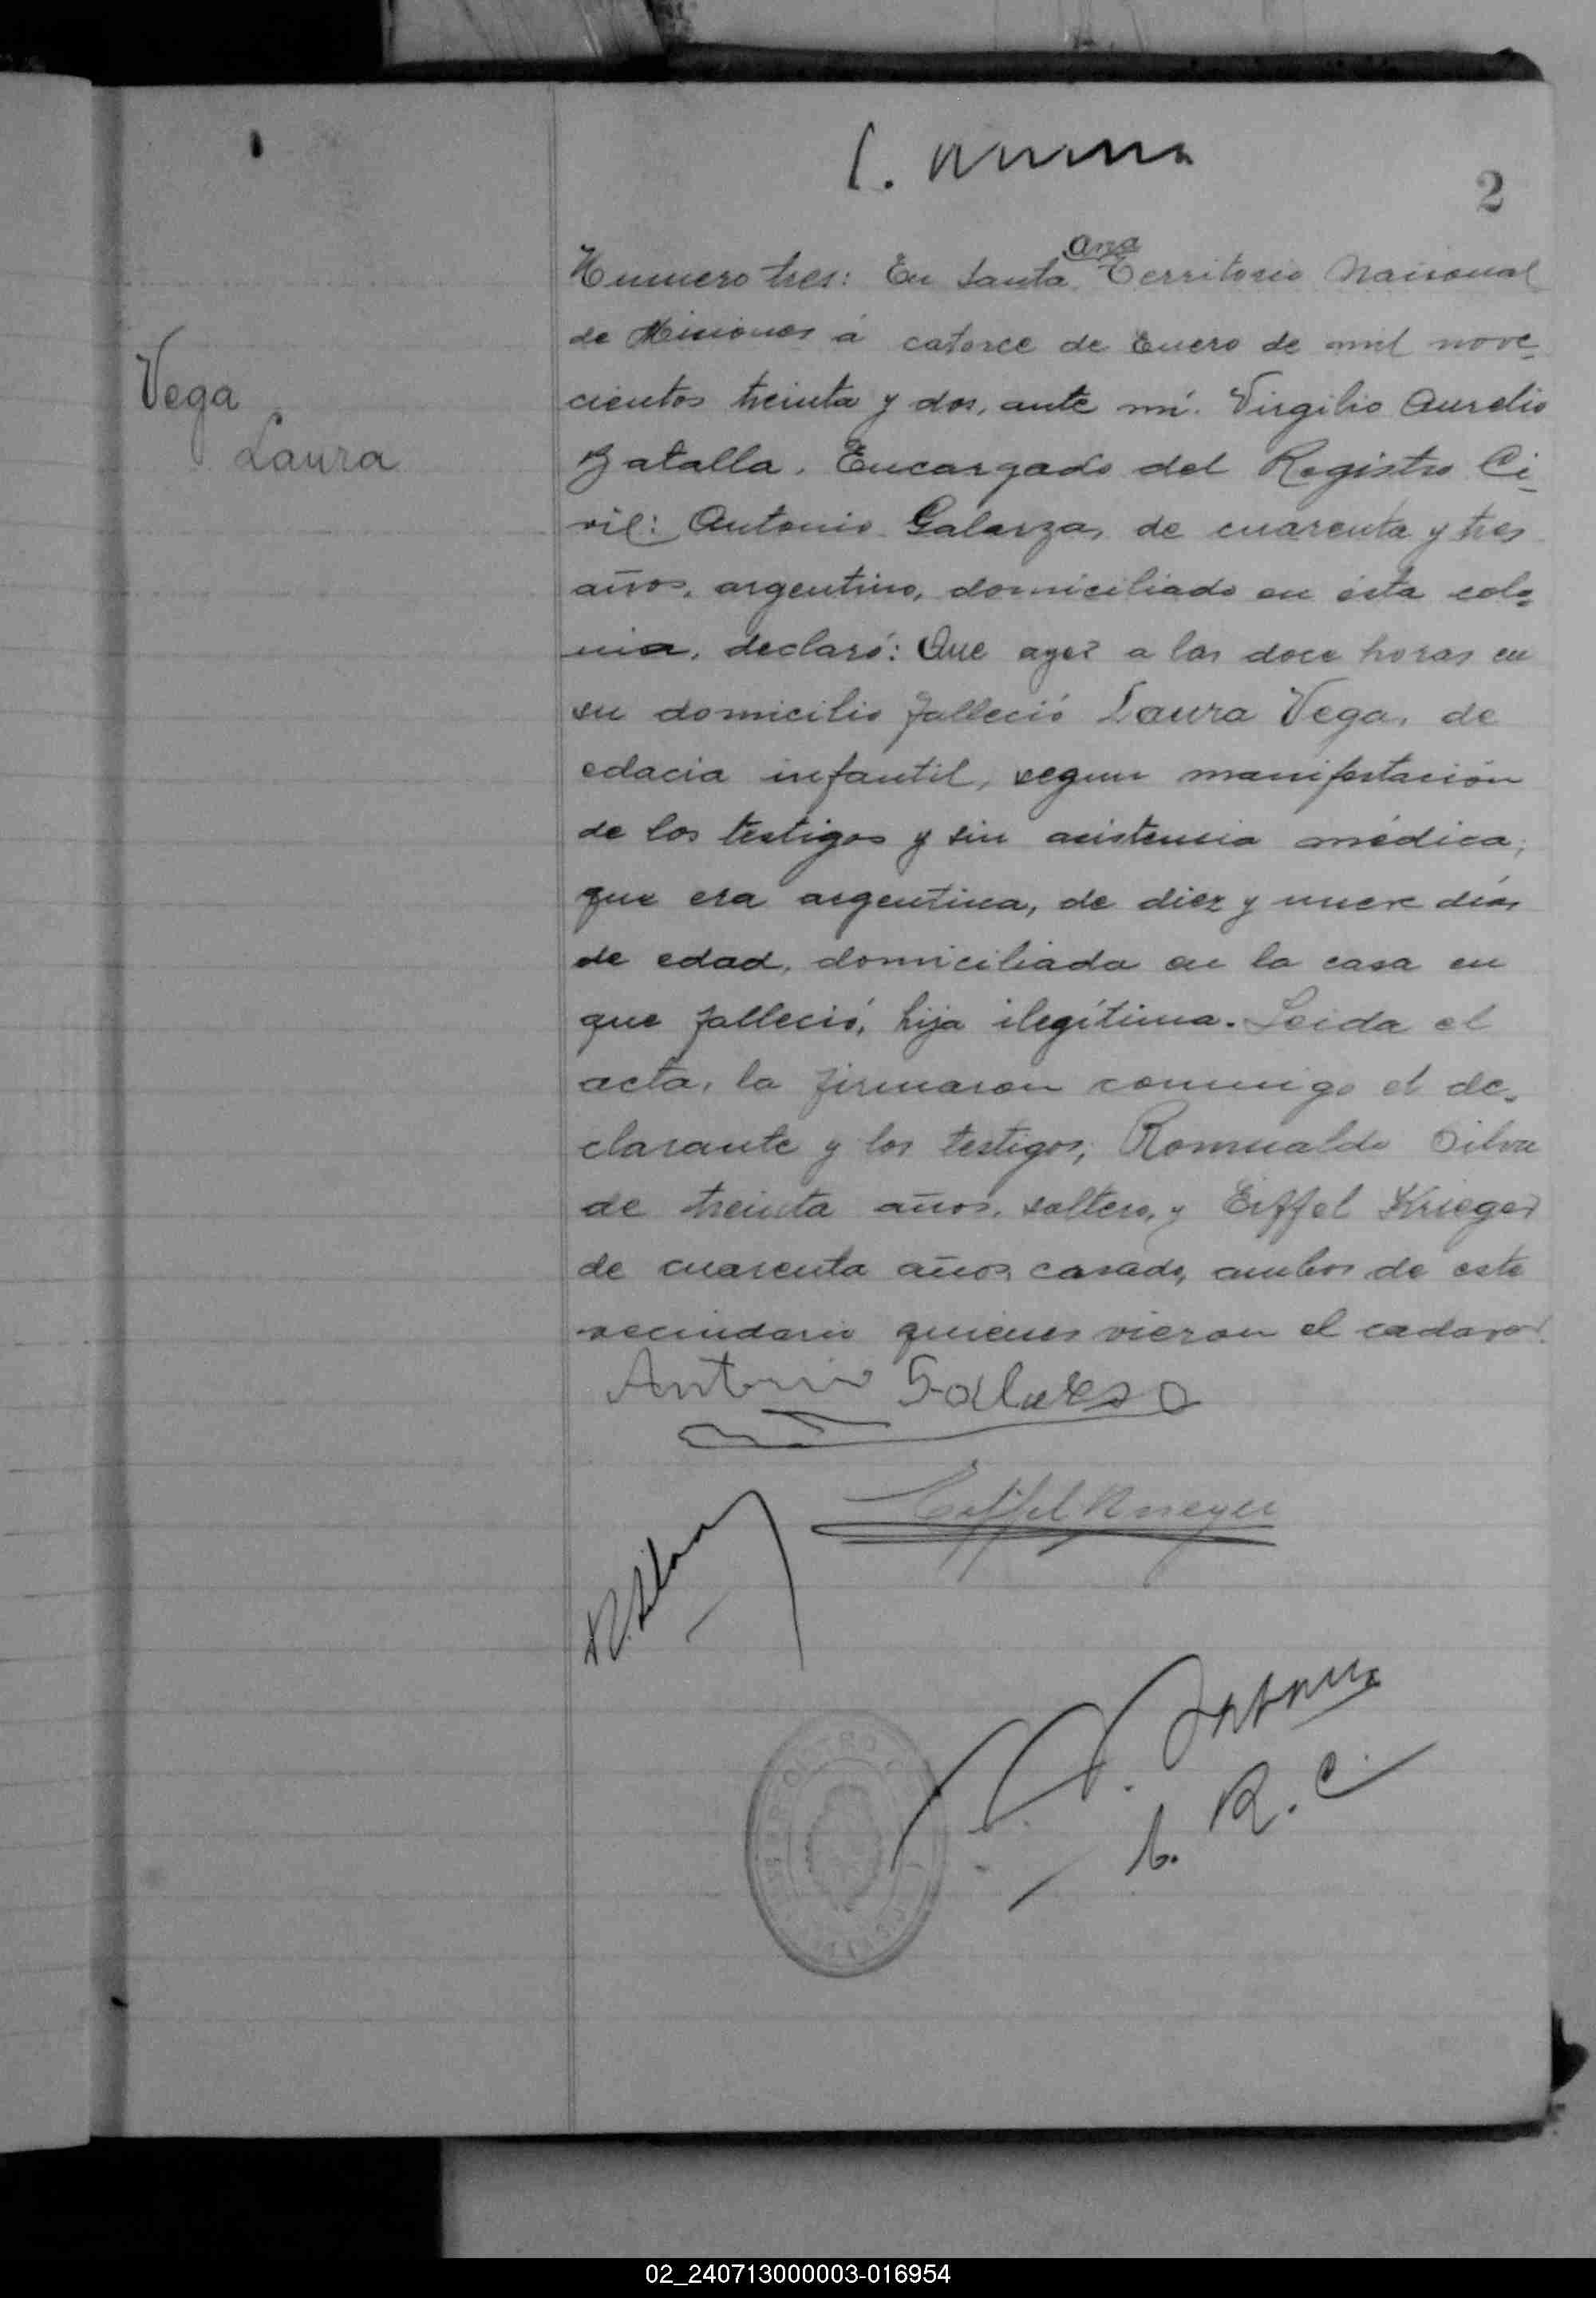 2
Numero tres: En Santa Ana Territorio Nacional
de Misiones á catorce de Enero de mil nove-
cientos treinta y dos, ante mí. Virgilio Aurelio
Batalla. Encargado del Registro Ci-
vil: Antonio Galarza, de cuarenta y tres
años, argentino, domiciliado en ésta colo-
nia, declaró: Que ayer a las doce horas en
su domicilio falleció Laura Vega, de
edacia infantil, segun manifestación
de los testigos y sin asistencia médica;
que era argentina, de diez y nueve días
de edad, domiciliada en la casa en
que falleció, hija ilegítima. Leida el
acta, la firmaron conmigo el de-
clarante y los testigos; Romualdo Silva
de treinta años, soltero, y Eiffel Krieger
de cuarenta años, casado, ambos de este
vecindario quienes vieron el cadaver.
Vega
Laura
Antonio Galarza
Eiffel Krieger
R. Silva
R. C.
02_240713000003-016954